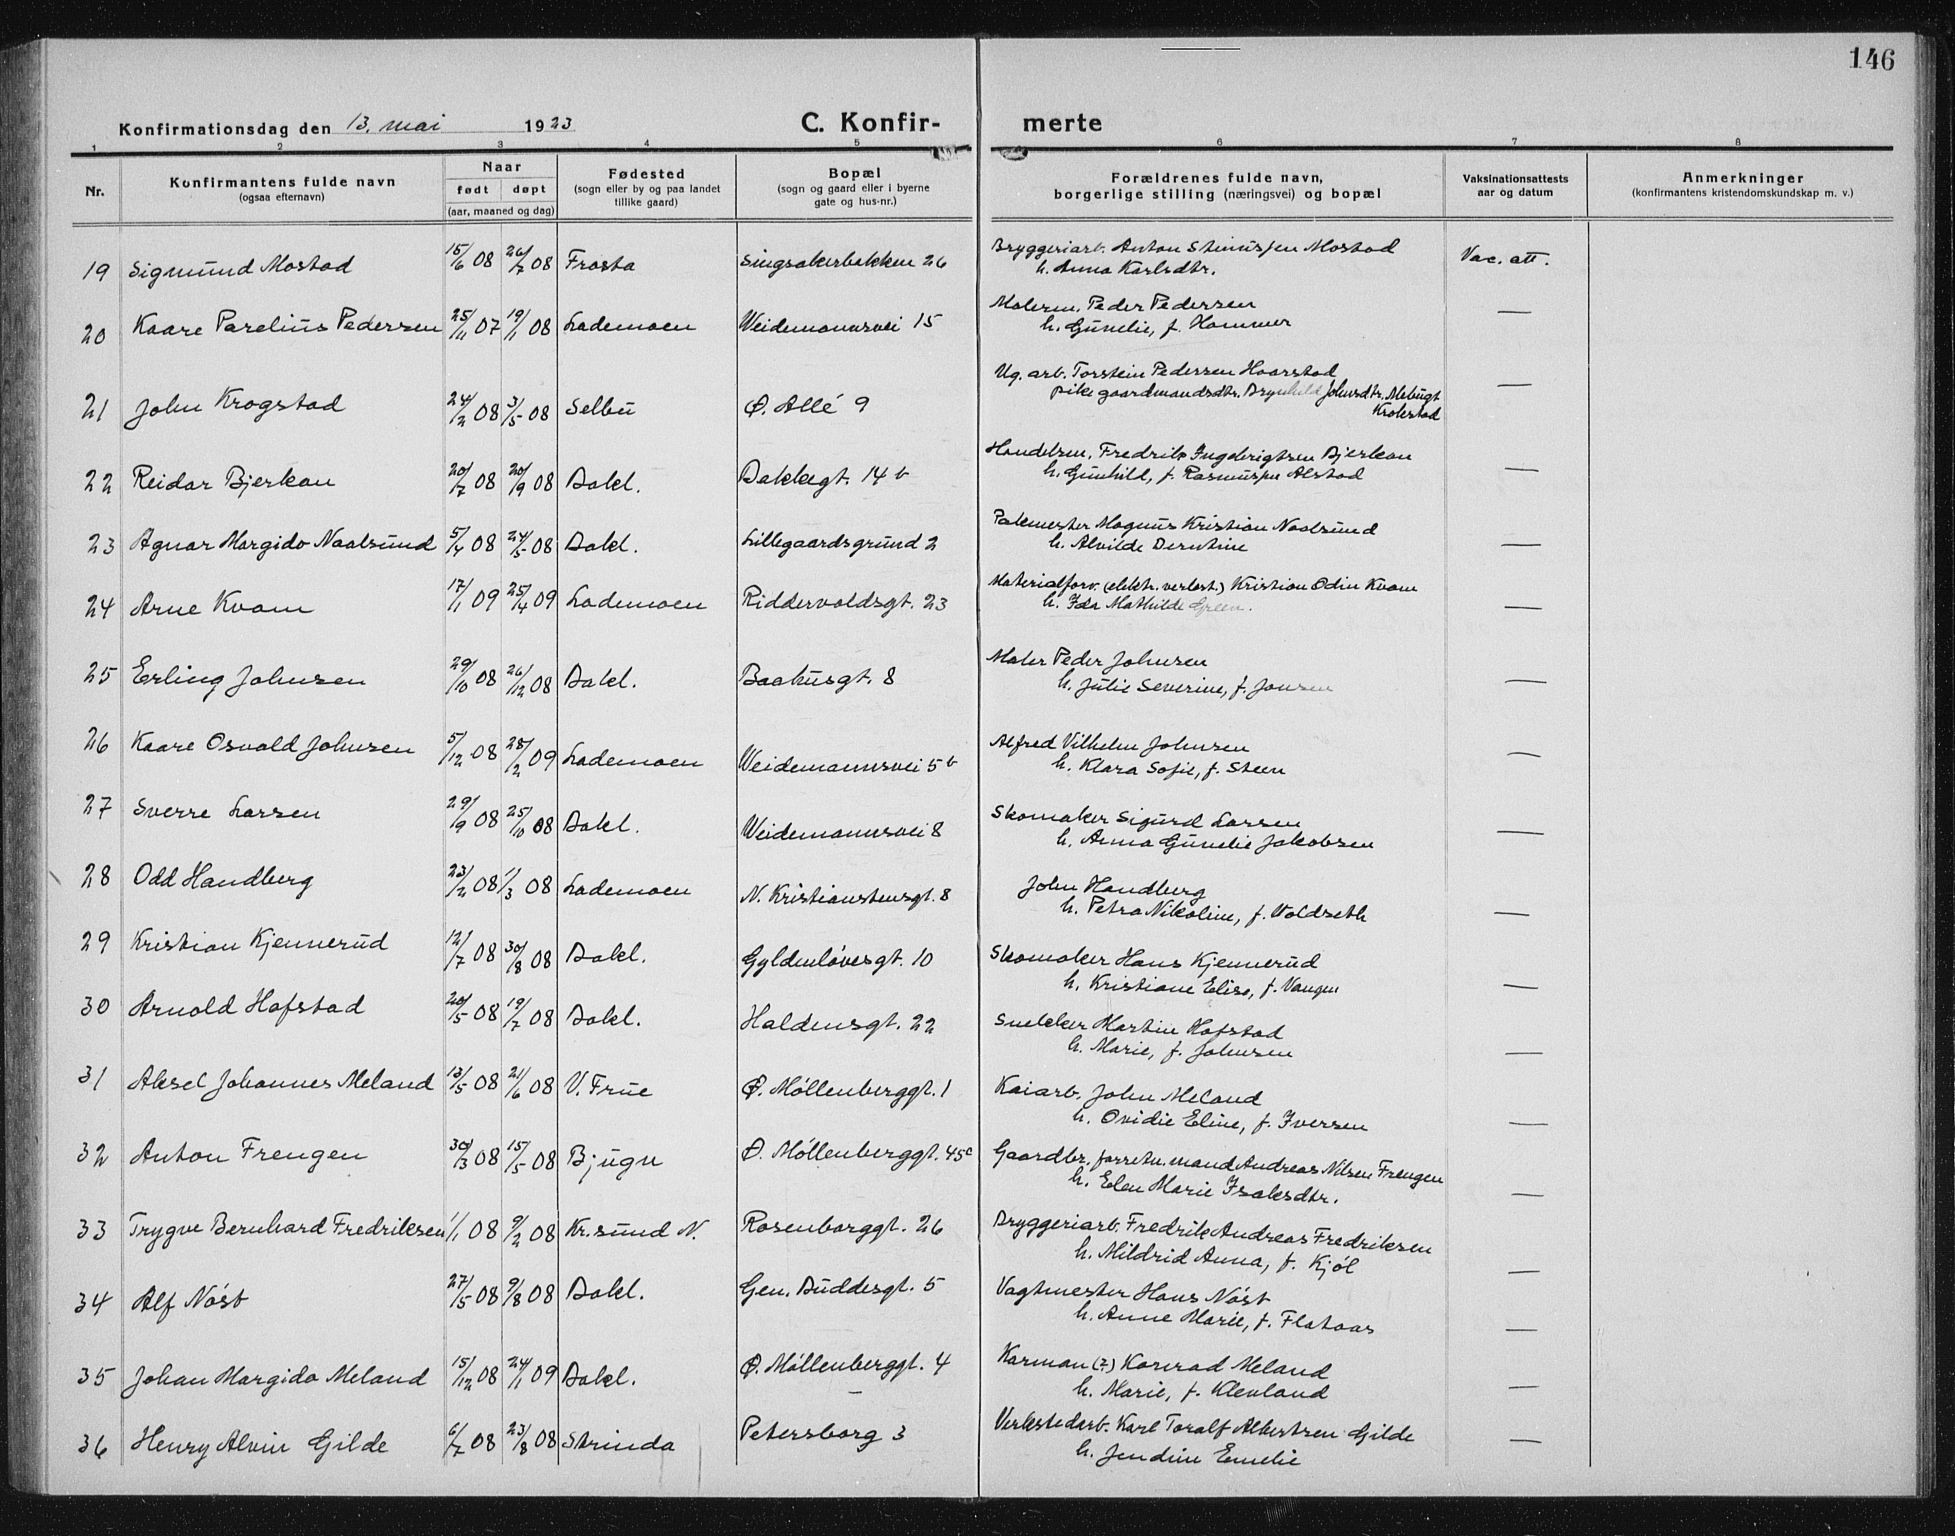 146
Konfirmationsdag den 13. mai 1923 C. Konfir- merte
1 2 3 4 5 6 7 8
Nr. Konfirmantens fulde navn (ogsaa efternavn) Naar født døpt (aar, maaned og dag) Fødested (sogn eller by og paa landet tillike gaard) Bopæl (sogn og gaard eller i byerne gate og hus-nr.) Forældrenes fulde navn, borgerlige stilling (næringsvei) og bopæl Vaksinationsattests aar og datum Anmerkninger (konfirmantens kristendomskundskap m. v.)
19 Sigmund Mostad 15/6 08 26/7 08 Frosta Singsakerbakken 26 Bryggeriarb. Anton Mostad Vac. att.
h. Anna Karlsdtr.
20 Kaare Parelius Pedersen 25/11 07 19/1 08 Lademoen Weidemannsvei 15 Malerm. Peder Pedersen —
h. Gunelie, f. Hammer
21 John Krogstad 24/2 08 3/5 08 Selbu Ø. Allé 9 Ug. arb. Torstein Pedersen Haarstad —
pike gaardmandsdtr. Brynhild Johnsdtr.
22 Reidar Bjerkan 20/7 08 20/9 08 Bakl. Bakkegt. 14 b Handelsm. Fredrik Ingebrigtsen Bjerkan —
h. Gunhild, f. Alstad
23 Agnar Margido Naalsund 5/4 08 24/5 08 Bakl. Lillegaardsgrund 2 Magnus Kristian Naalsund —
h. Alvilde
24 Arne Kvam 17/1 09 25/4 09 Lademoen Riddervoldsgt. 23 Materialforv. Kristian Odin Kvam —
h. Ida Mathilde Green.
25 Erling Johnsen 29/10 08 26/12 08 Bakl. Baahusgt. 8 Maler Peder Johnsen —
h. Julie Severine, f. Jonsen
26 Kaare Osvald Johnsen 5/12 08 28/2 09 Lademoen Weidemannsvei 5 b Alfred Vilhelm Johnsen —
h. Klara Sofie, f. Steen
27 Sverre Larsen 29/9 08 25/10 08 Bakl. Weidemannsvei 8 Skomaker Sigurd Larsen —
h. Anna Gunelie Jakobsen
28 Odd Handberg 23/2 08 1/3 08 Lademoen N. Kristianstensgt. 8 John Handberg —
h. Petra Nikoline, f. Voldseth
29 Kristian Kjennerud 12/7 08 30/8 08 Bakl. Gyldenløvesgt. 10 Skomaker Hans Kjennerud —
h. Kristiane Elise, f. Vangen
30 Arnold Hofstad 20/5 08 19/7 08 Bakl. Haldensgt. 22 Snekker Martin Hofstad —
h. Marie, f. Johnsen
31 Aksel Johannes Meland 13/5 08 21/6 08 V. Frue Ø. Møllenberggt. 1 Kaiarb. John Meland —
h. Ovidie Eline, f. Iversen
32 Anton Frengen 30/3 08 15/5 08 Bjugn Ø. Møllenberggt. 45c Gaardbr. forretn.mand Andreas Nilsen Frengen —
h. Elen Marie Isaksdtr.
33 Trygve Bernhard Fredriksen 1/1 08 9/2 08 Kr.sund N. Rosenborggt. 26 Bryggeriarb. Fredrik Andreas Fredriksen —
h. Mildrid Anna, f. Kjøl
34 Alf Nøst 27/5 08 9/8 08 Bakl. Gen. Buddesgt. 5 Vagtmester Hans Nøst —
h. Anne Marie, f. Flataas
35 Johan Margido Meland 15/12 08 24/1 09 Bakl. Ø. Møllenberggt. 4 Karman (?) Konrad Meland —
h. Marie, f. Klevland
36 Henry Alvin Gilde 6/7 08 23/8 08 Strinda Petersborg 3 Verkstedarb. Karl Toralf Albertsen Gilde —
h. Jendine Emelie